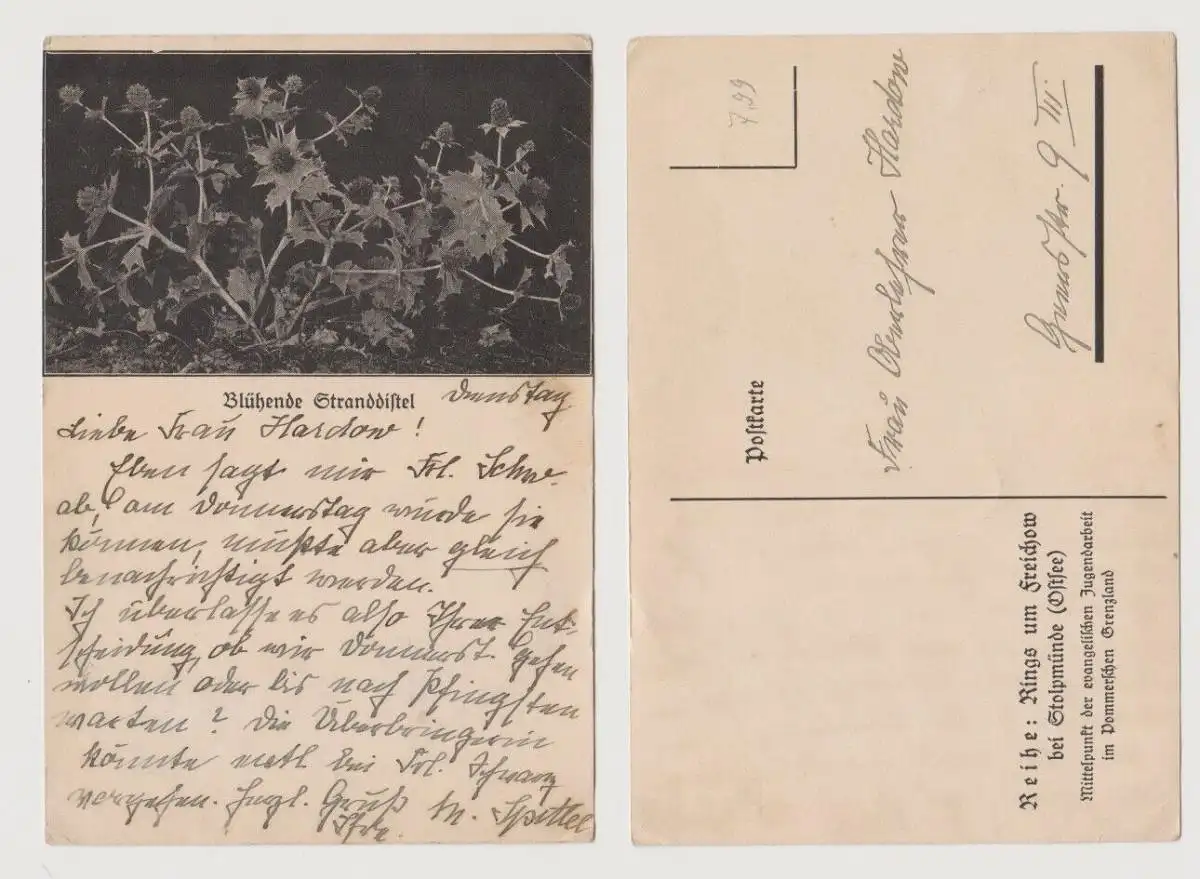 Blühende Stranddistel
Dienstag
Liebe Frau Hardow!
Eben sagt mir Frl. Schw.
ab, am Donnerstag würde sie
können, müßte aber gleich
benachrichtigt werden.
Ich überlasse es also Ihrer Ent-
scheidung, ob wir Donnerst. gehen
wollen oder bis nach Pfingsten
warten? Die Überbringerin
könnte evtl bei Frl. Schwarz
vorgehen. Herzl. Gruß
Ihre M. Spittel
7,99
Frau Hardow
9 III
Postkarte
Reihe: Rings um Freichow
bei Stolpmünde (Ostsee)
Mittelpunkt der evangelischen Jugendarbeit
im Pommerschen Grenzland